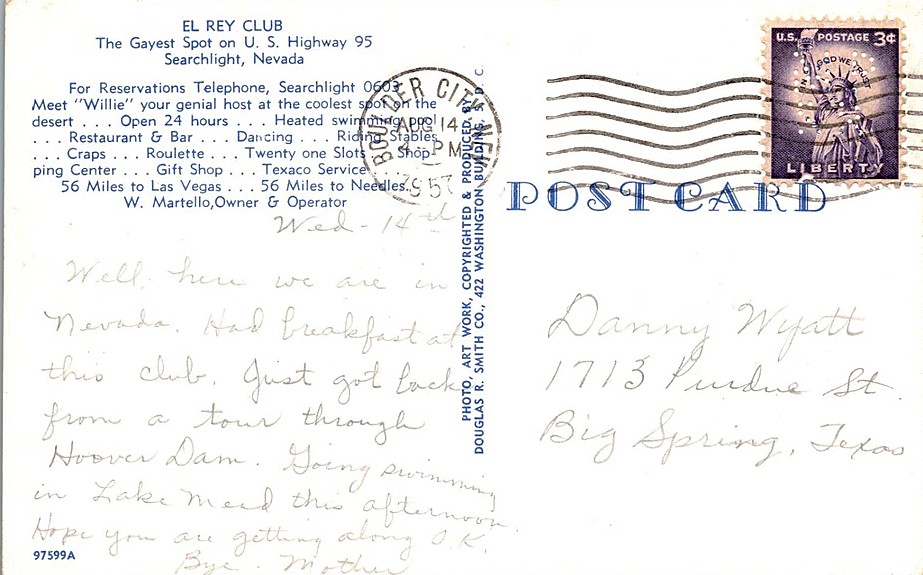 EL REY CLUB
The Gayest Spot on U. S. Highway 95
Searchlight, Nevada
For Reservations Telephone, Searchlight 0603
Meet "Willie" your genial host at the coolest spot on the
desert . . . Open 24 hours . . . Heated swimming pool
. . . Restaurant & Bar . . . Dancing . . . Riding Stables
. . . Craps . . . Roulette . . . Twenty one Slots . . . Shop-
ping Center . . . Gift Shop . . . Texaco Service . . .
56 Miles to Las Vegas . . . 56 Miles to Needles.
W. Martello,Owner & Operator
Wed - 14th
Well, here we are in
Nevada. Had breakfast at
this club. Just got back
from a tour through
Hoover Dam. Going swimming
in Lake Mead this afternoon.
Hope you are getting along O.K.
Bye - Mother
97599A
PHOTO, ART WORK, COPYRIGHTED & PRODUCED BY
DOUGLAS R. SMITH CO., 422 WASHINGTON BUILDING, D. C.
BOULDER CITY
AUG 14
4 PM
1957
U.S. POSTAGE 3¢
IN GOD WE TRUST
LIBERTY
POST CARD
Danny Wyatt
1713 Purdue St.
Big Spring, Texas